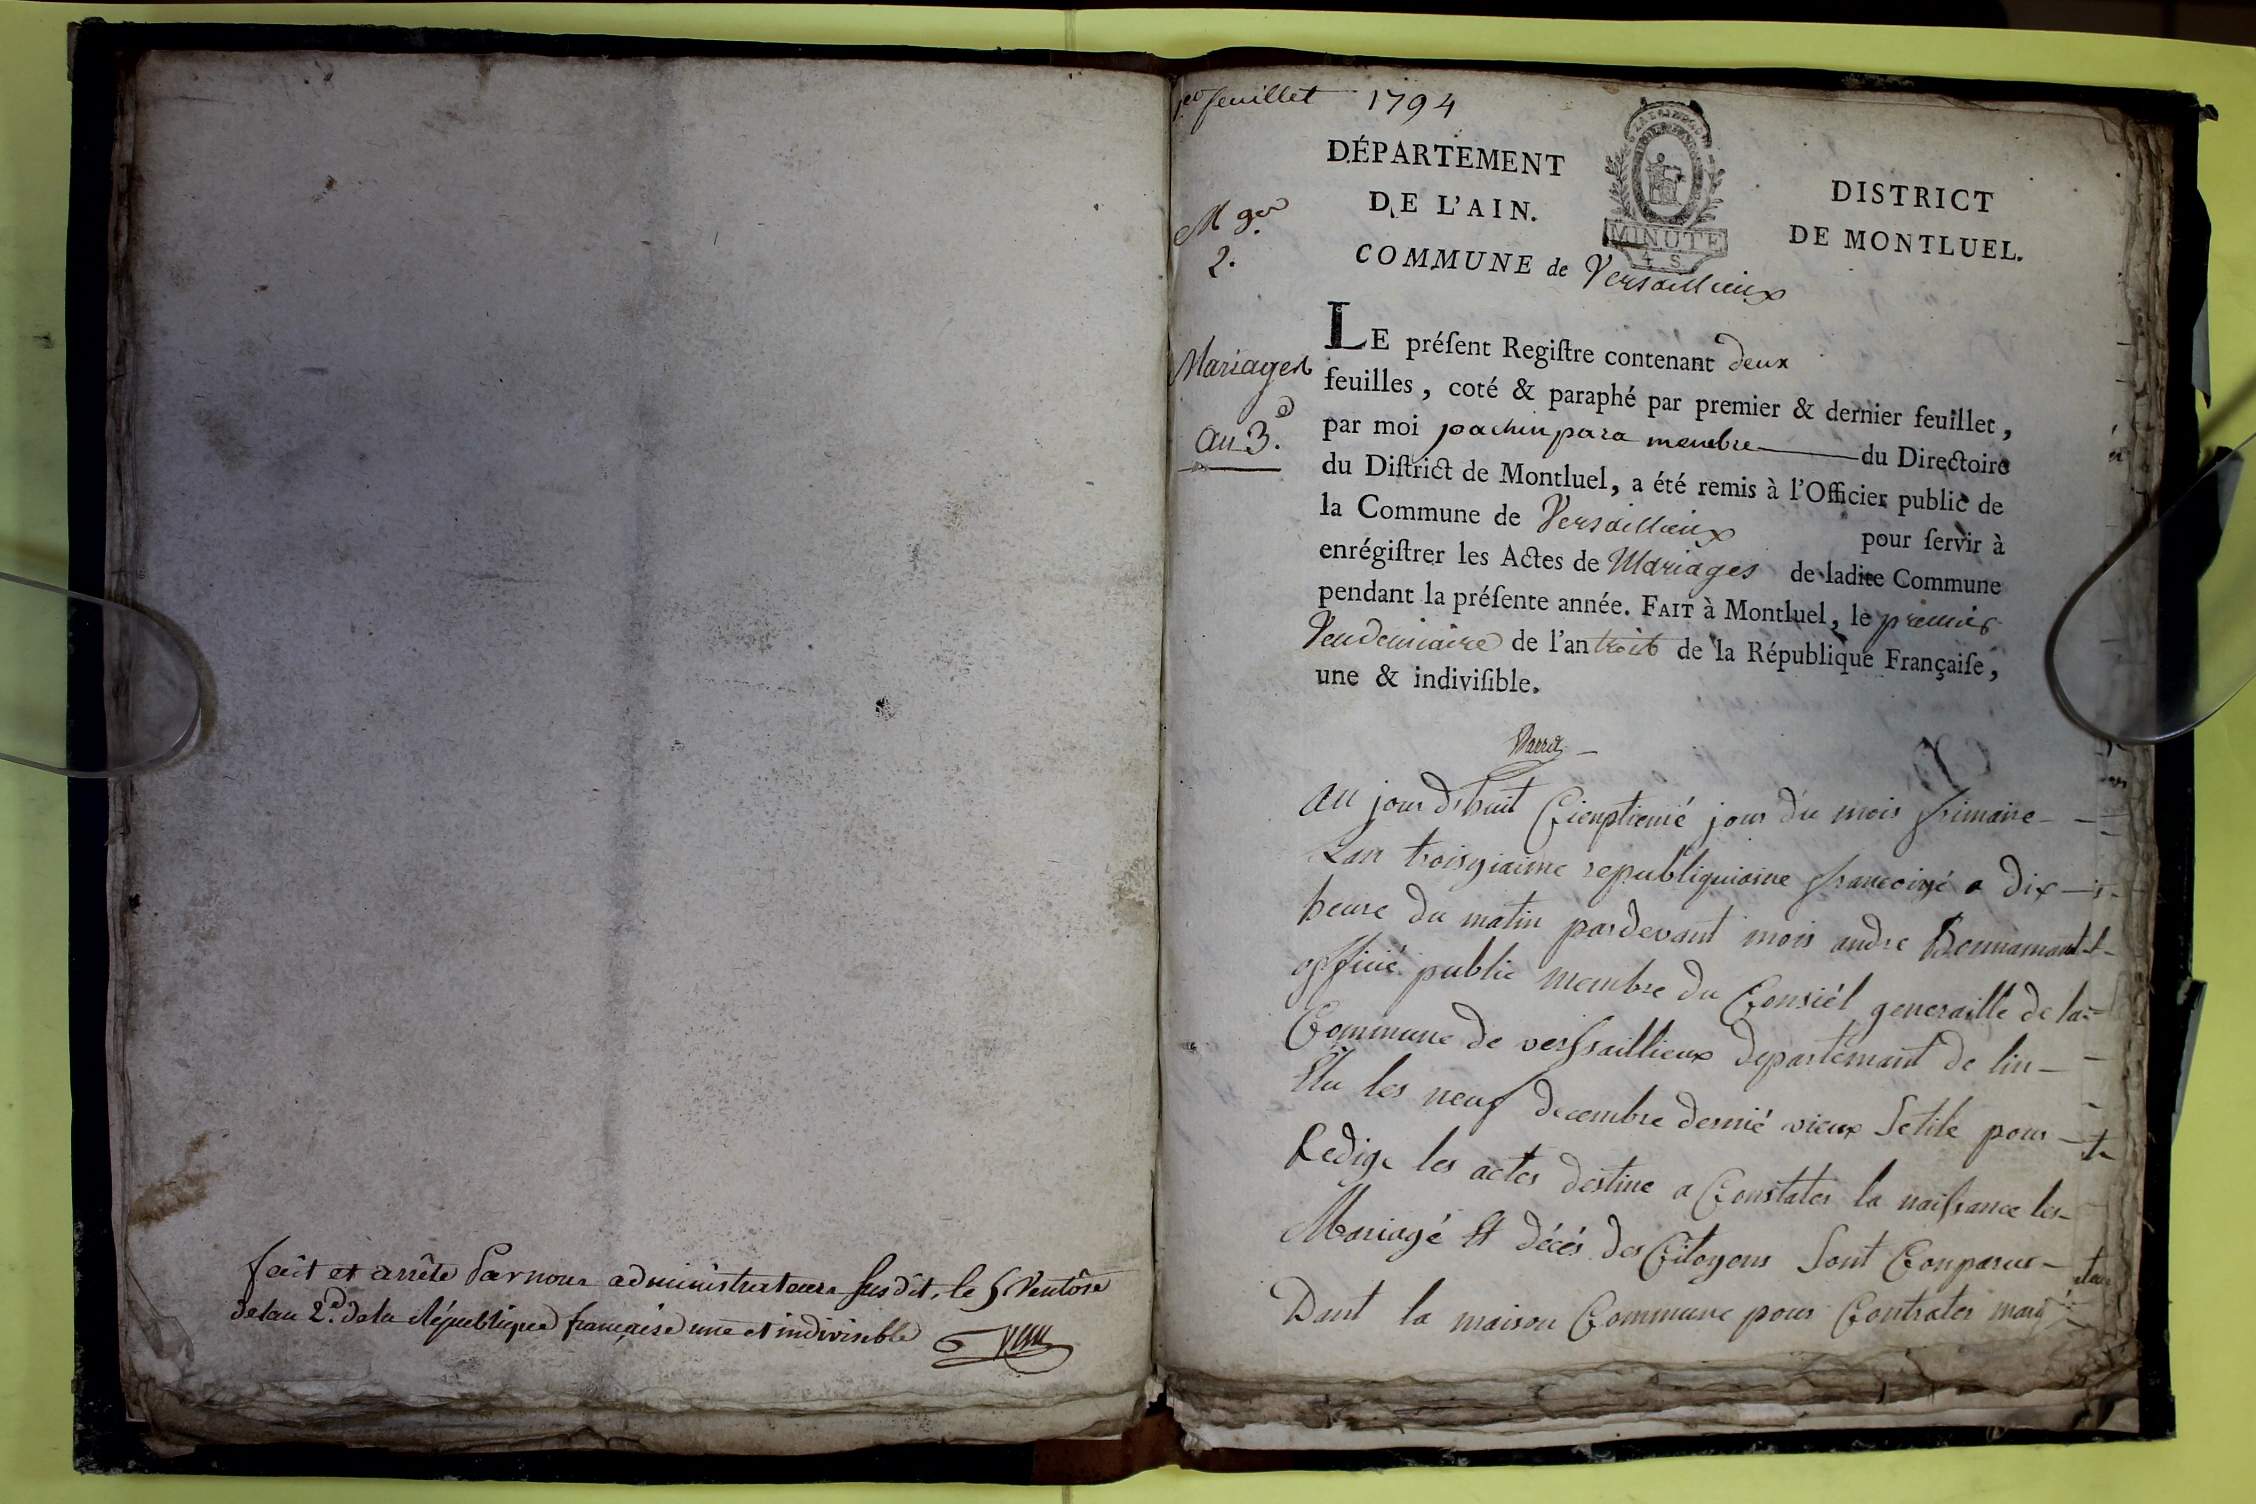 fait et arrêté par nous administrateurs susdit, le 5 Ventôse
de lan 2.e de la République française une et indivisible
1er feuillet 1794
DÉPARTEMENT
DE L'AIN.
DISTRICT
DE MONTLUEL.
MINUTE
4 S
COMMUNE de Versaillieux
M ger
2.
Mariages
an 3.e
LE préſent Regiſtre contenant deux
feuilles, coté & paraphé par premier & dernier feuillet,
par moi joachin para membre du Directoire
du Diſtrict de Montluel, a été remis à l'Officier public de
la Commune de Versaillieux pour ſervir à
enrégiſtrer les Actes de Mariages de ladite Commune
pendant la préſente année. FAIT à Montluel, le premier
Vendemiaire de l'an trois de la République Françaiſe,
une & indiviſible.
au jour dhuit Cienptiemé jour du mois frimaire
Lan troisgiaime republiquiaine francoizé a dix
heure du matin pardevant mois andre Bonnamant
officié public membre du Consiél generaille de la
Commune de verssaillieux departemant de lin
Elu les neuf decembre dernié vieux Setile pour
Redige les actes destine a Constater la naissance les
Mariagé Et décés des Citoyens Sont Conparue
Dant la maison Commune pour Contrater mariy